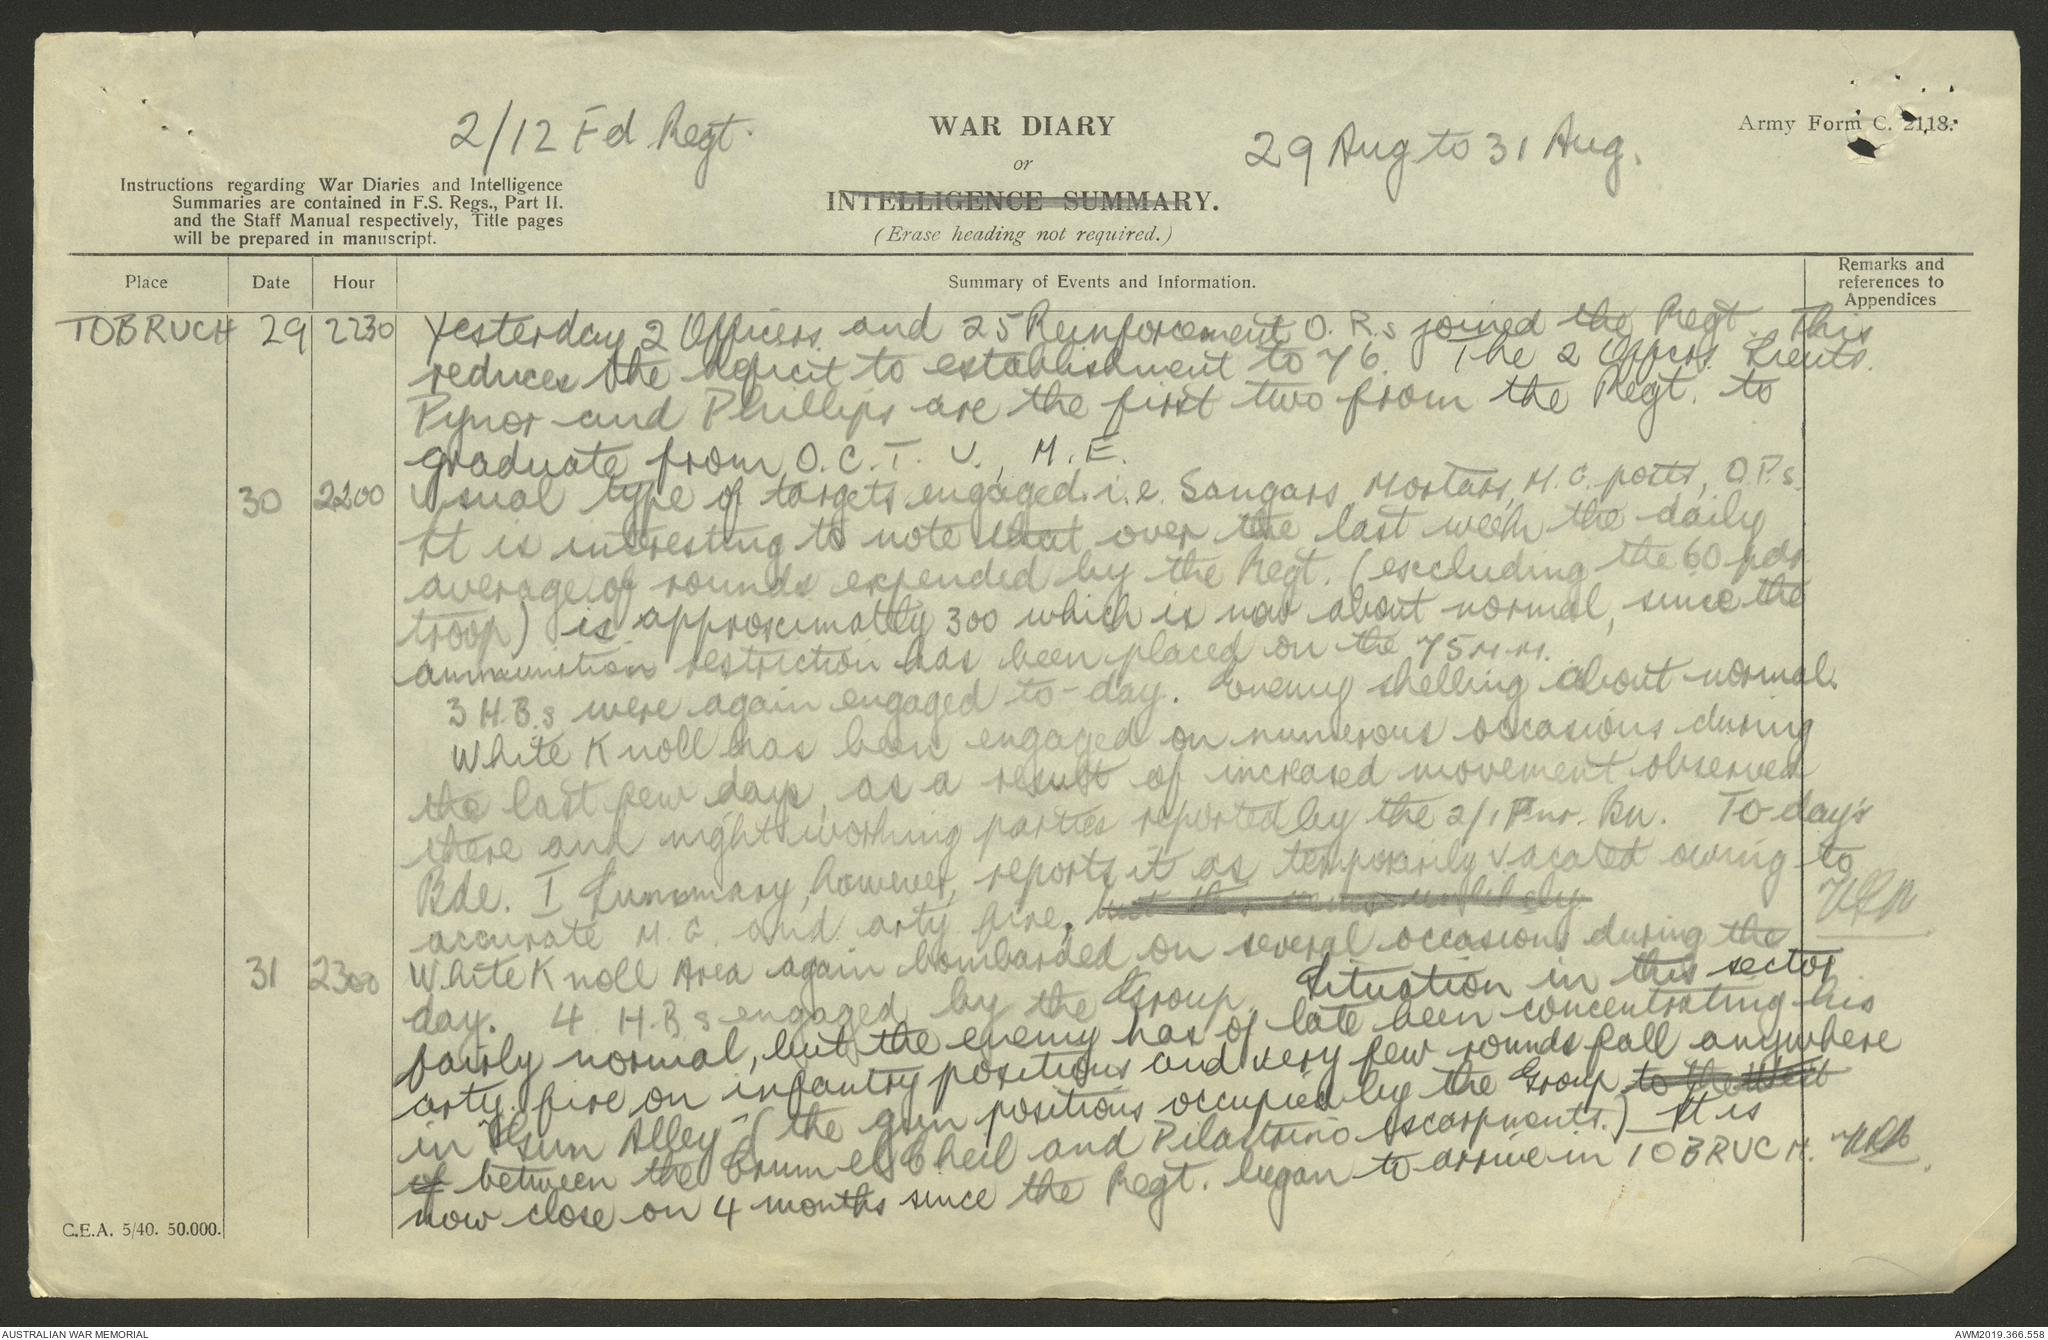 2/12 Fd Regt.
WAR DIARY
or
INTELLIGENCE SUMMARY.
(Erase heading not required.)
29 Aug to 31 Aug.
Army Form C. 2118.
Instructions regarding War Diaries and Intelligence
Summaries are contained in F.S. Regs., Part II.
and the Staff Manual respectively, Title pages
will be prepared in manuscript.
Place Date Hour Summary of Events and Information. Remarks and references to Appendices
TOBRUCH 29 2230 Yesterday 2 Officers and 25 Reinforcement O.R.s joined the Regt. This
reduces the deficit to establishment to 76. The 2 Officers Lieuts.
Pynor and Phillips are the first two from the Regt. to
graduate from O.C.T.U., M.E.
30 2200 Usual type of targets engaged. i.e. Sangars, Mortars, M.G. posts, O.P.s.
It is interesting to note that over the last week the daily
average of rounds expended by the Regt. (excluding the 60 pdr
troop) is approximately 300 which is now about normal, since the
ammunition restriction has been placed on the 75 M.M.
3 H.B.s were again engaged to-day. Enemy shelling about normal.
White Knoll has been engaged on numerous occasions during
the last few days, as a result of increased movement observed
there and night working parties reported by the 2/1 Pnr. Bn. To day's
Bde. I Summary, however, reports it as temporarily vacated owing to
accurate M.G. and arty fire, but this seems unlikely
31 2300 White Knoll Area again bombarded on several occasions during the
day. 4 H.B.s engaged by the Group. Situation in this sector
fairly normal, but the enemy has of late been concentrating his
arty. fire on infantry positions and very few rounds fall anywhere
in "Gun Alley" (the gun positions occupied by the Group to the West
of between the Crummel Cheil and Pilastrino escarpments.) It is
now close on 4 months since the Regt. began to arrive in TOBRUCH.
C.E.A. 5/40. 50.000.
AUSTRALIAN WAR MEMORIAL
AWM2019.366.558